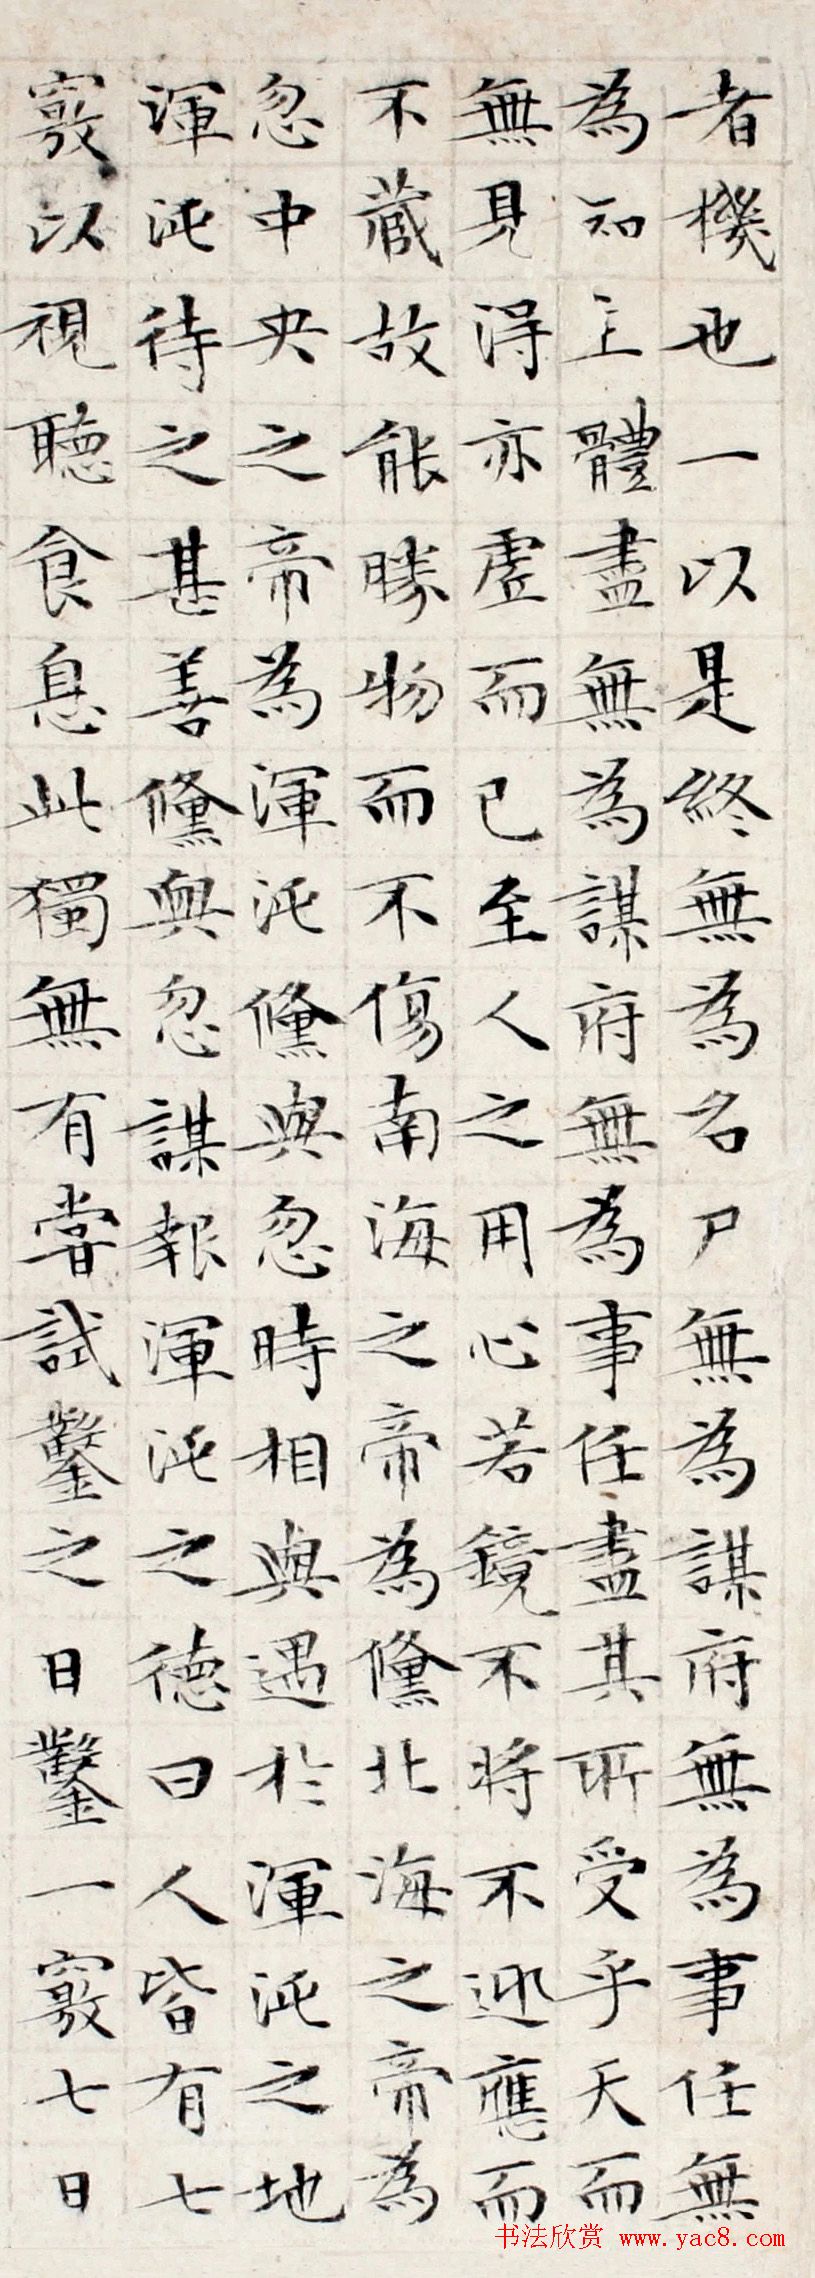 者機也一以是終無為名尸無為謀府無為事任無
為知主體盡無為謀府無為事任盡其所受乎天而
無見得亦虛而已至人之用心若鏡不將不迎應而
不藏故能勝物而不傷南海之帝為儵北海之帝為
忽中央之帝為渾沌儵與忽時相與遇於渾沌之地
渾沌待之甚善儵與忽謀報渾沌之德曰人皆有七
竅以視聽食息此獨無有嘗試鑿之日鑿一竅七日
书法欣赏 www.yac8.com